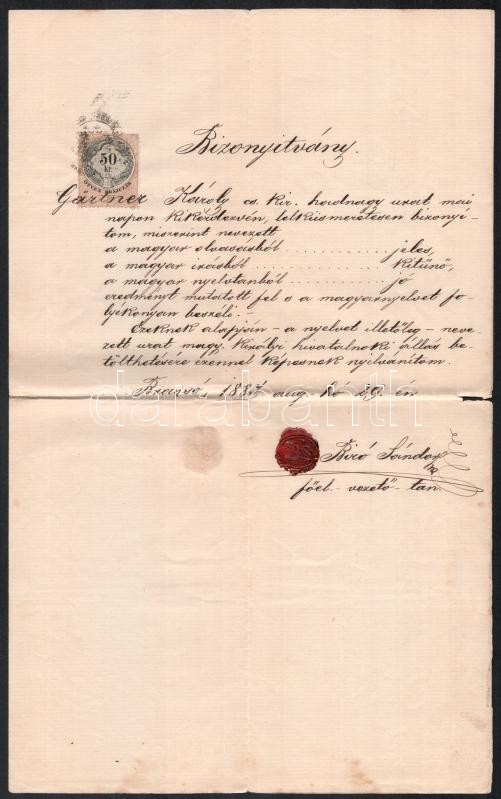 50
kr.
ÖTVEN KRAJCZÁR
Bizonyitvány.
Gärtner Károly cs. kir. hadnagy urat mai
napon kikérdezvén, lelkiismeretesen bizonyi-
tom, miszerint nevezett
a magyar olvasásból ............ jeles,
a magyar irásból ............ kitünő,
a magyar nyelvtanból ............ jó
eredményt mutatott fel s a magyarnyelvet fo-
lyékonyan beszéli. -
Ezeknek alapján - a nyelvet illetőleg - neve-
zett urat magy. királyi hivatalnoki állás be-
tölthetésére ezennel képesnek nyilvánitom.
Brassó, 1887 aug. hó 29. én
darabanth
Biró Sándor
főel. - vezető - tan.